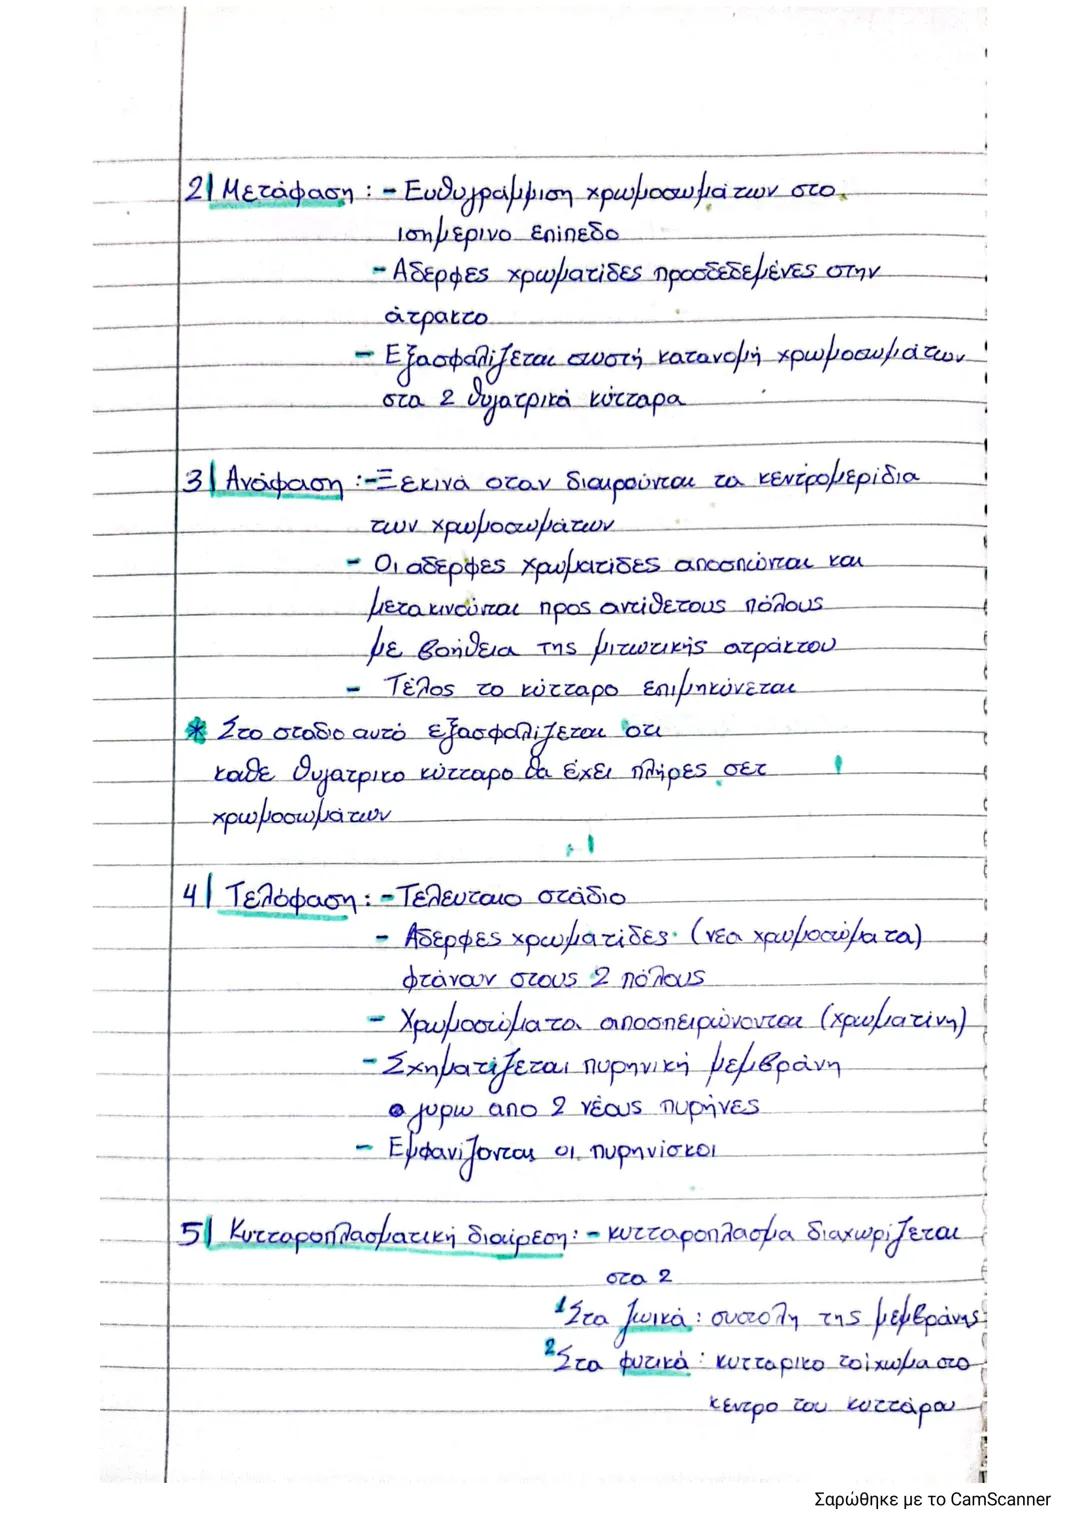 2| Μετάφαση : - Ευθυγράμμιση χρωμοσωμάτων στο
ισημερινο επίπεδο
- Αδερφες χρωματίδες προσδεδεμένες στην
άτρακτο
- Εξασφαλίζεται σωστή κατανομή χρωμοσωμάτων
στα 2 θυγατρικά κύτταρα
3| Ανάφαση :- Ξεκινά οταν διαιρούνται τα κεντρομερίδια
των χρωμοσωμάτων
- Οι αδερφες χρωματίδες αποσπώνται και
μετακινούνται προς αντίθετους πόλους
με βοήθεια της μιτωτικής ατράκτου
- Τέλος το κύτταρο επιμηκύνεται
* Στο σταδιο αυτό εξασφαλίζεται οτι
καθε θυγατρικο κύτταρο θα έχει πλήρες σετ
χρωμοσωμάτων
4| Τελόφαση : - Τελευταιο στάδιο
- Αδερφες χρωματίδες (νεα χρωμοσώματα)
φτάνουν στους 2 πόλους
- Χρωμοσώματα αποσπειρώνονται (χρωματίνη)
- Σχηματίζεται πυρηνική μεμβράνη
γυρω απο 2 νέους πυρήνες
- Εμφανίζονται οι πυρηνίσκοι
5| Κυτταροπλασματική διαίρεση : - κυτταροπλασμα διαχωρίζεται
στα 2
1 Στα ζωικά : συστολη της μεμβράνης
2 Στα φυτικά : κυτταρικο τοίχωμα στο
κεντρο του κυττάρου
Σαρώθηκε με το CamScanner